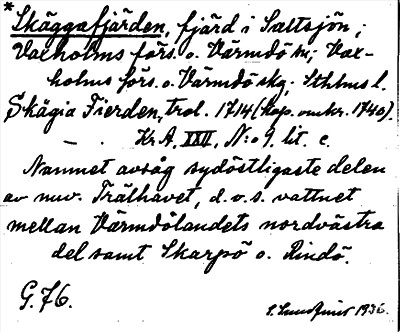 *Skäggafjärden, fjärd i Saltsjön;
Vaxholms förs. o. Värmdö sn; Vax-
holms förs. o. Värmdö skg; Sthlms l.
Skägia Fierden, trol. 1714 (kop. omkr. 1740).
— . Kr A, XXVI, N:o 9. lit. c.
Namnet avsåg sydöstligaste delen
av nuv. Trälhavet, d.v.s. vattnet
mellan Värmdölandets nordvästra
del samt Skarpö o. Rindö.
G. 76.
1936.